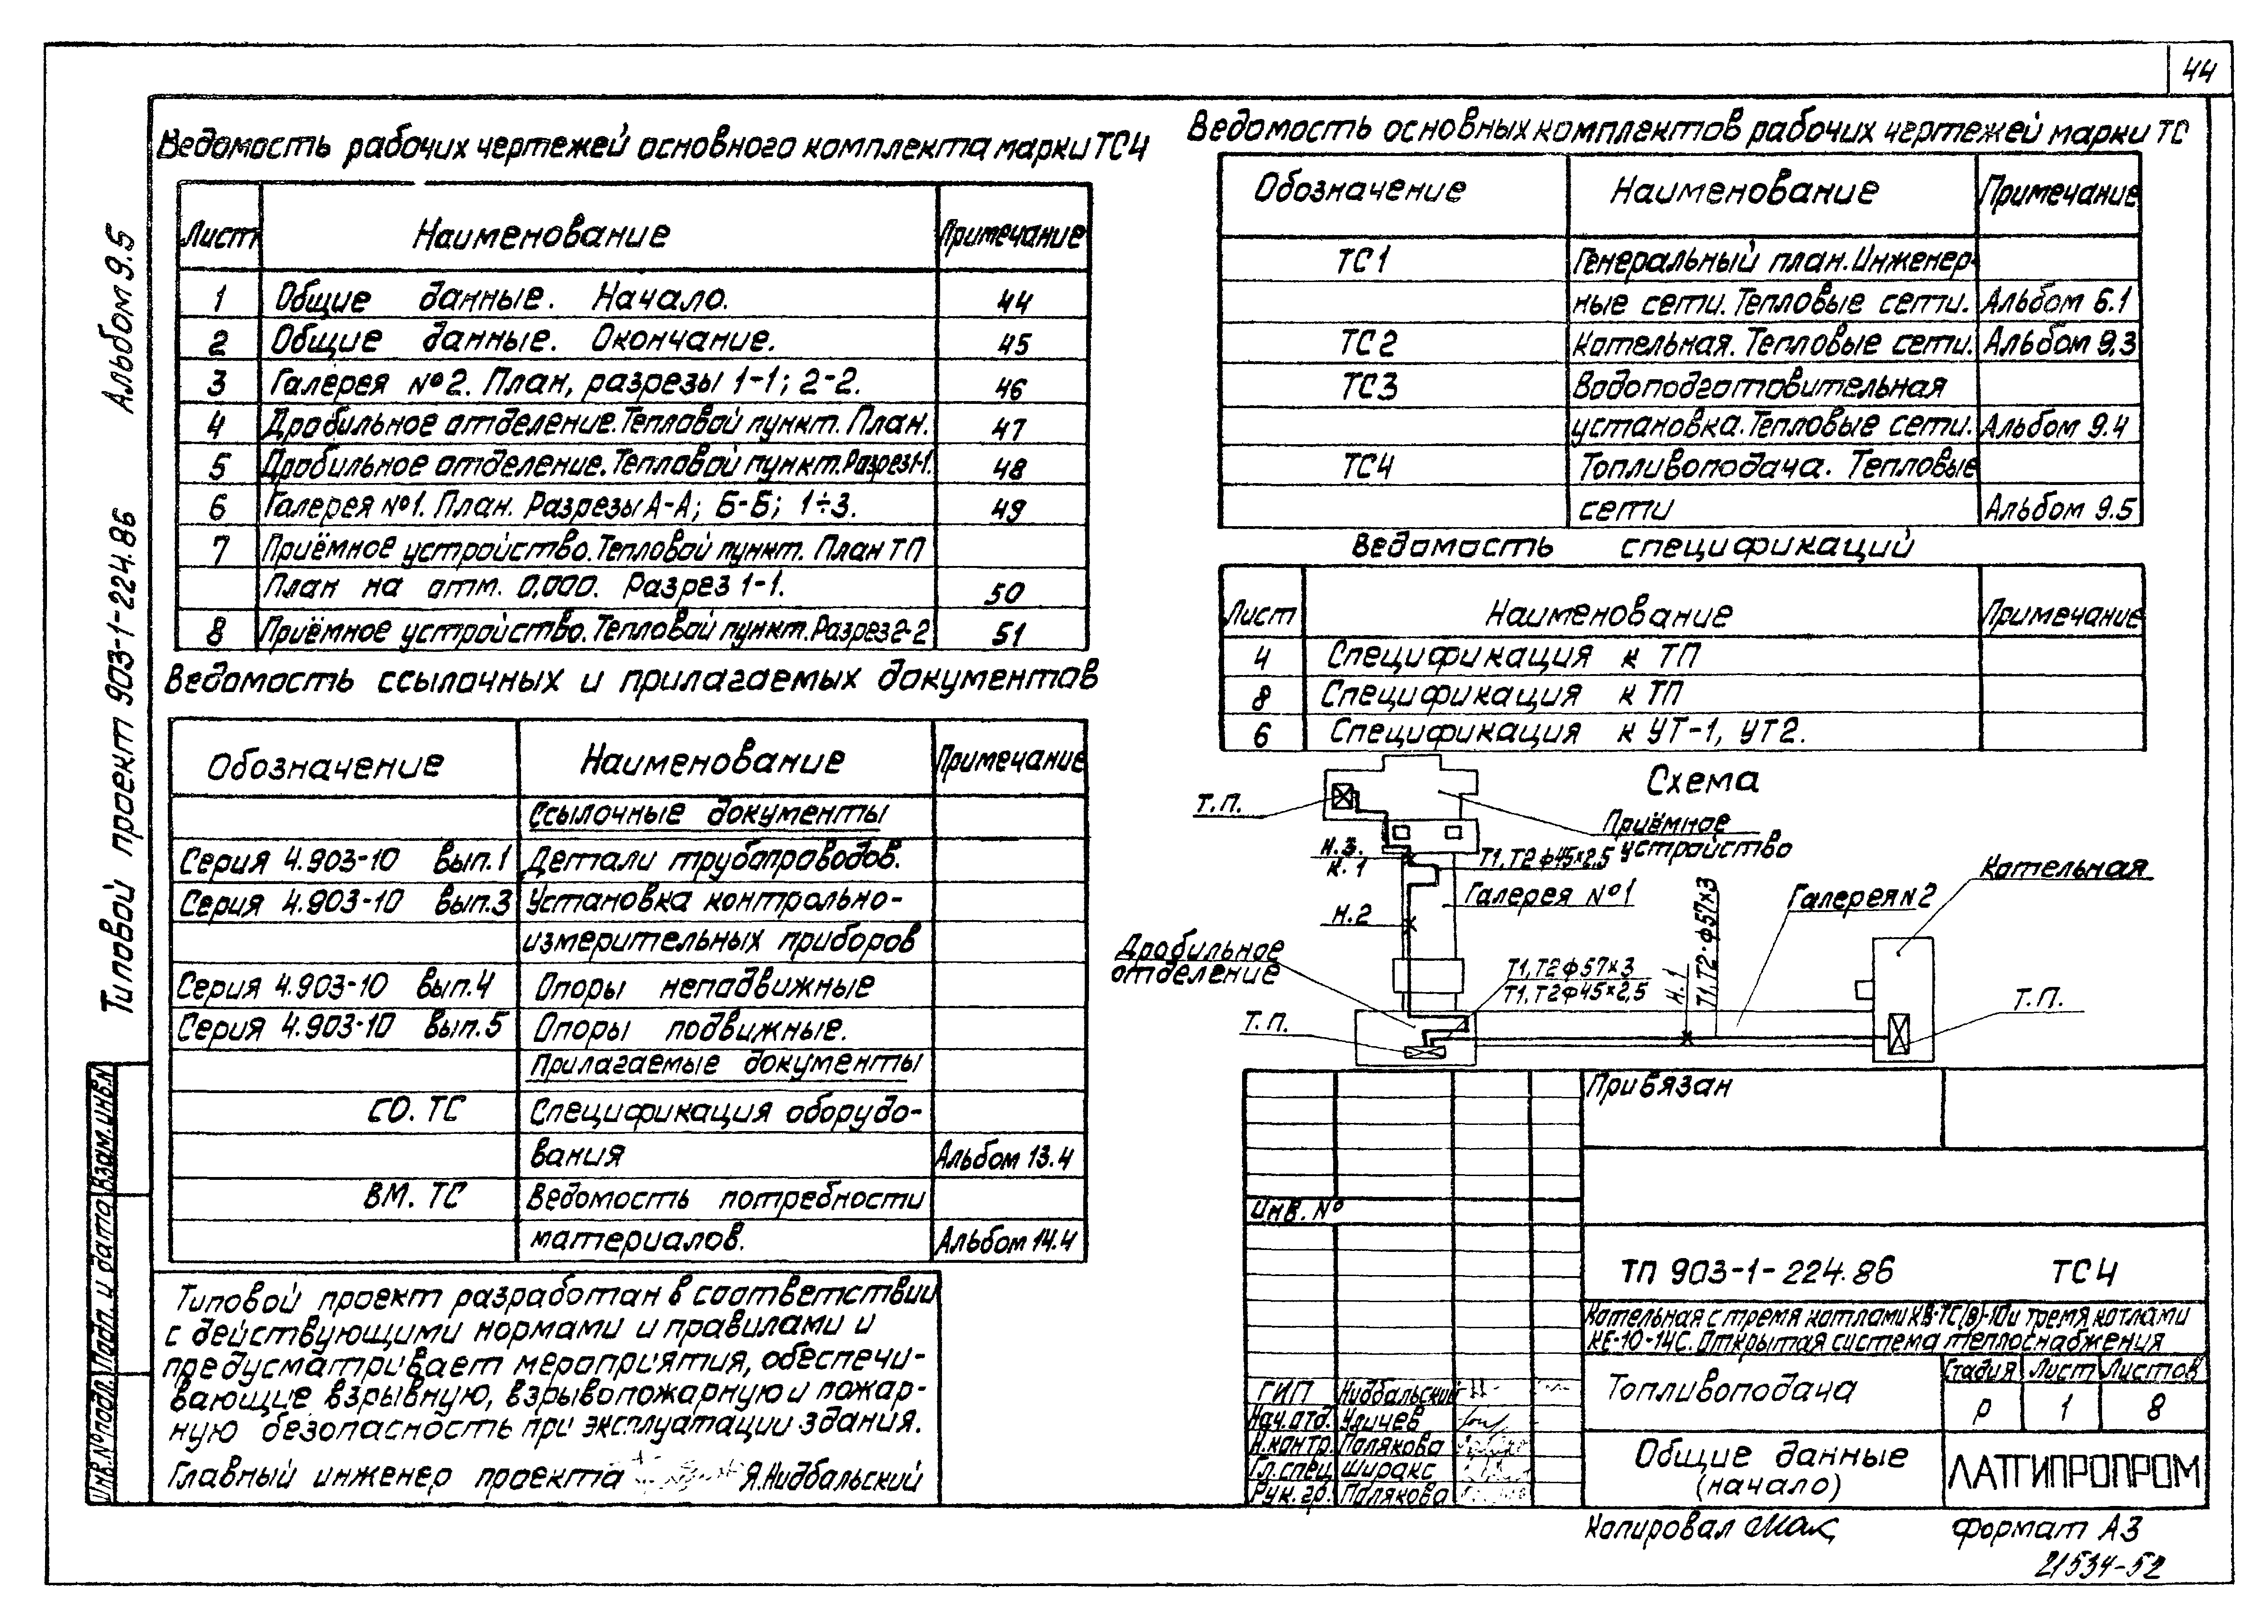 44
Альбом 9.5
Типовой проект 903-1-224.86
Взам.инв.N
Подп. и дата
Инв.№подл.
Ведомость рабочих чертежей основного комплекта марки ТС4
Лист Наименование Примечание
1 Общие данные. Начало. 44
2 Общие данные. Окончание. 45
3 Галерея №2. План, разрезы 1-1; 2-2. 46
4 Дробильное отделение.Тепловой пункт. План. 47
5 Дробильное отделение.Тепловой пункт.Разрез1-1. 48
6 Галерея №1. План. Разрезы А-А; Б-Б; 1÷3. 49
7 Приёмное устройство.Тепловой пункт. План ТП
План на отм. 0,000. Разрез 1-1. 50
8 Приёмное устройство.Тепловой пункт.Разрез2-2 51
Ведомость ссылочных и прилагаемых документов
Обозначение Наименование Примечание
Ссылочные документы
Серия 4.903-10 вып.1 Детали трубопроводов.
Серия 4.903-10 вып.3 Установка контрольно-
измерительных приборов
Серия 4.903-10 вып.4 Опоры неподвижные
Серия 4.903-10 вып.5 Опоры подвижные.
Прилагаемые документы
СО. ТС Спецификация оборудо-
вания Альбом 13.4
ВМ. ТС Ведомость потребности
материалов. Альбом 14.4
Типовой проект разработан в соответствии
с действующими нормами и правилами и
предусматривает мероприятия, обеспечи-
вающие взрывную, взрывопожарную и пожар-
ную безопасность при эксплуатации здания.
Главный инженер проекта Я.Нидбальский
Ведомость основных комплектов рабочих чертежей марки ТС
Обозначение Наименование Примечание
ТС1 Генеральный план.Инженер-
ные сети. Тепловые сети. Альбом 6.1
ТС2 Котельная. Тепловые сети. Альбом 9.3
ТС3 Водоподготовительная
установка.Тепловые сети. Альбом 9.4
ТС4 Топливоподача. Тепловые
сети Альбом 9.5
Ведомость спецификаций
Лист Наименование Примечание
4 Спецификация к ТП
8 Спецификация к ТП
6 Спецификация к УТ-1, УТ2.
Схема
Т.П.
Приёмное
устройство
Н.3.
К.1
Т1,Т2 ф45×2,5
Галерея №1
Н.2
Галерея N2
Котельная
Дробильное
отделение
Т1,Т2 ф57×3
Т1,Т2 ф45×2,5
Н.1
Т1,Т2·ф57×3
Т.П.
Т.П.
Привязан
Инв. №
ТП 903-1-224.86 ТС4
Котельная с тремя котлами КВ-ТС(В)-10 и тремя котлами
КЕ-10-14С. Открытая система теплоснабжения
Топливоподача
Стадия Лист Листов
Р 1 8
ГИП Нидбальский
Нач.отд. Уличев
Н.контр. Полякова
Гл.спец Ширакс
Рук.гр. Полякова
Общие данные
(начало)
ЛАТГИПРОПРОМ
Копировал
Формат А3
21534-52